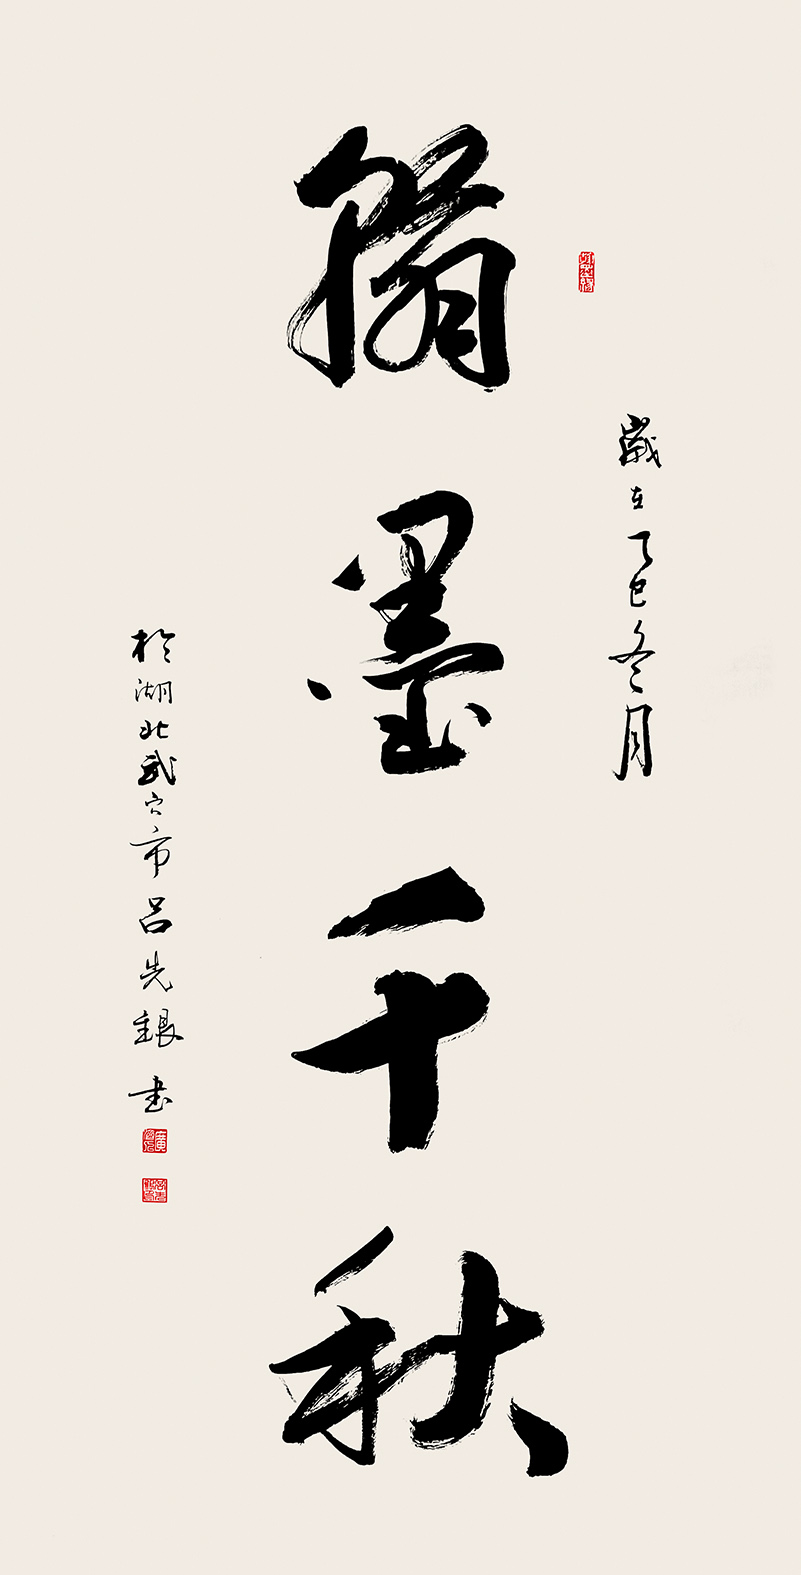 翰墨千秋
歲在乙巳冬月
於湖北武穴市呂先銀书